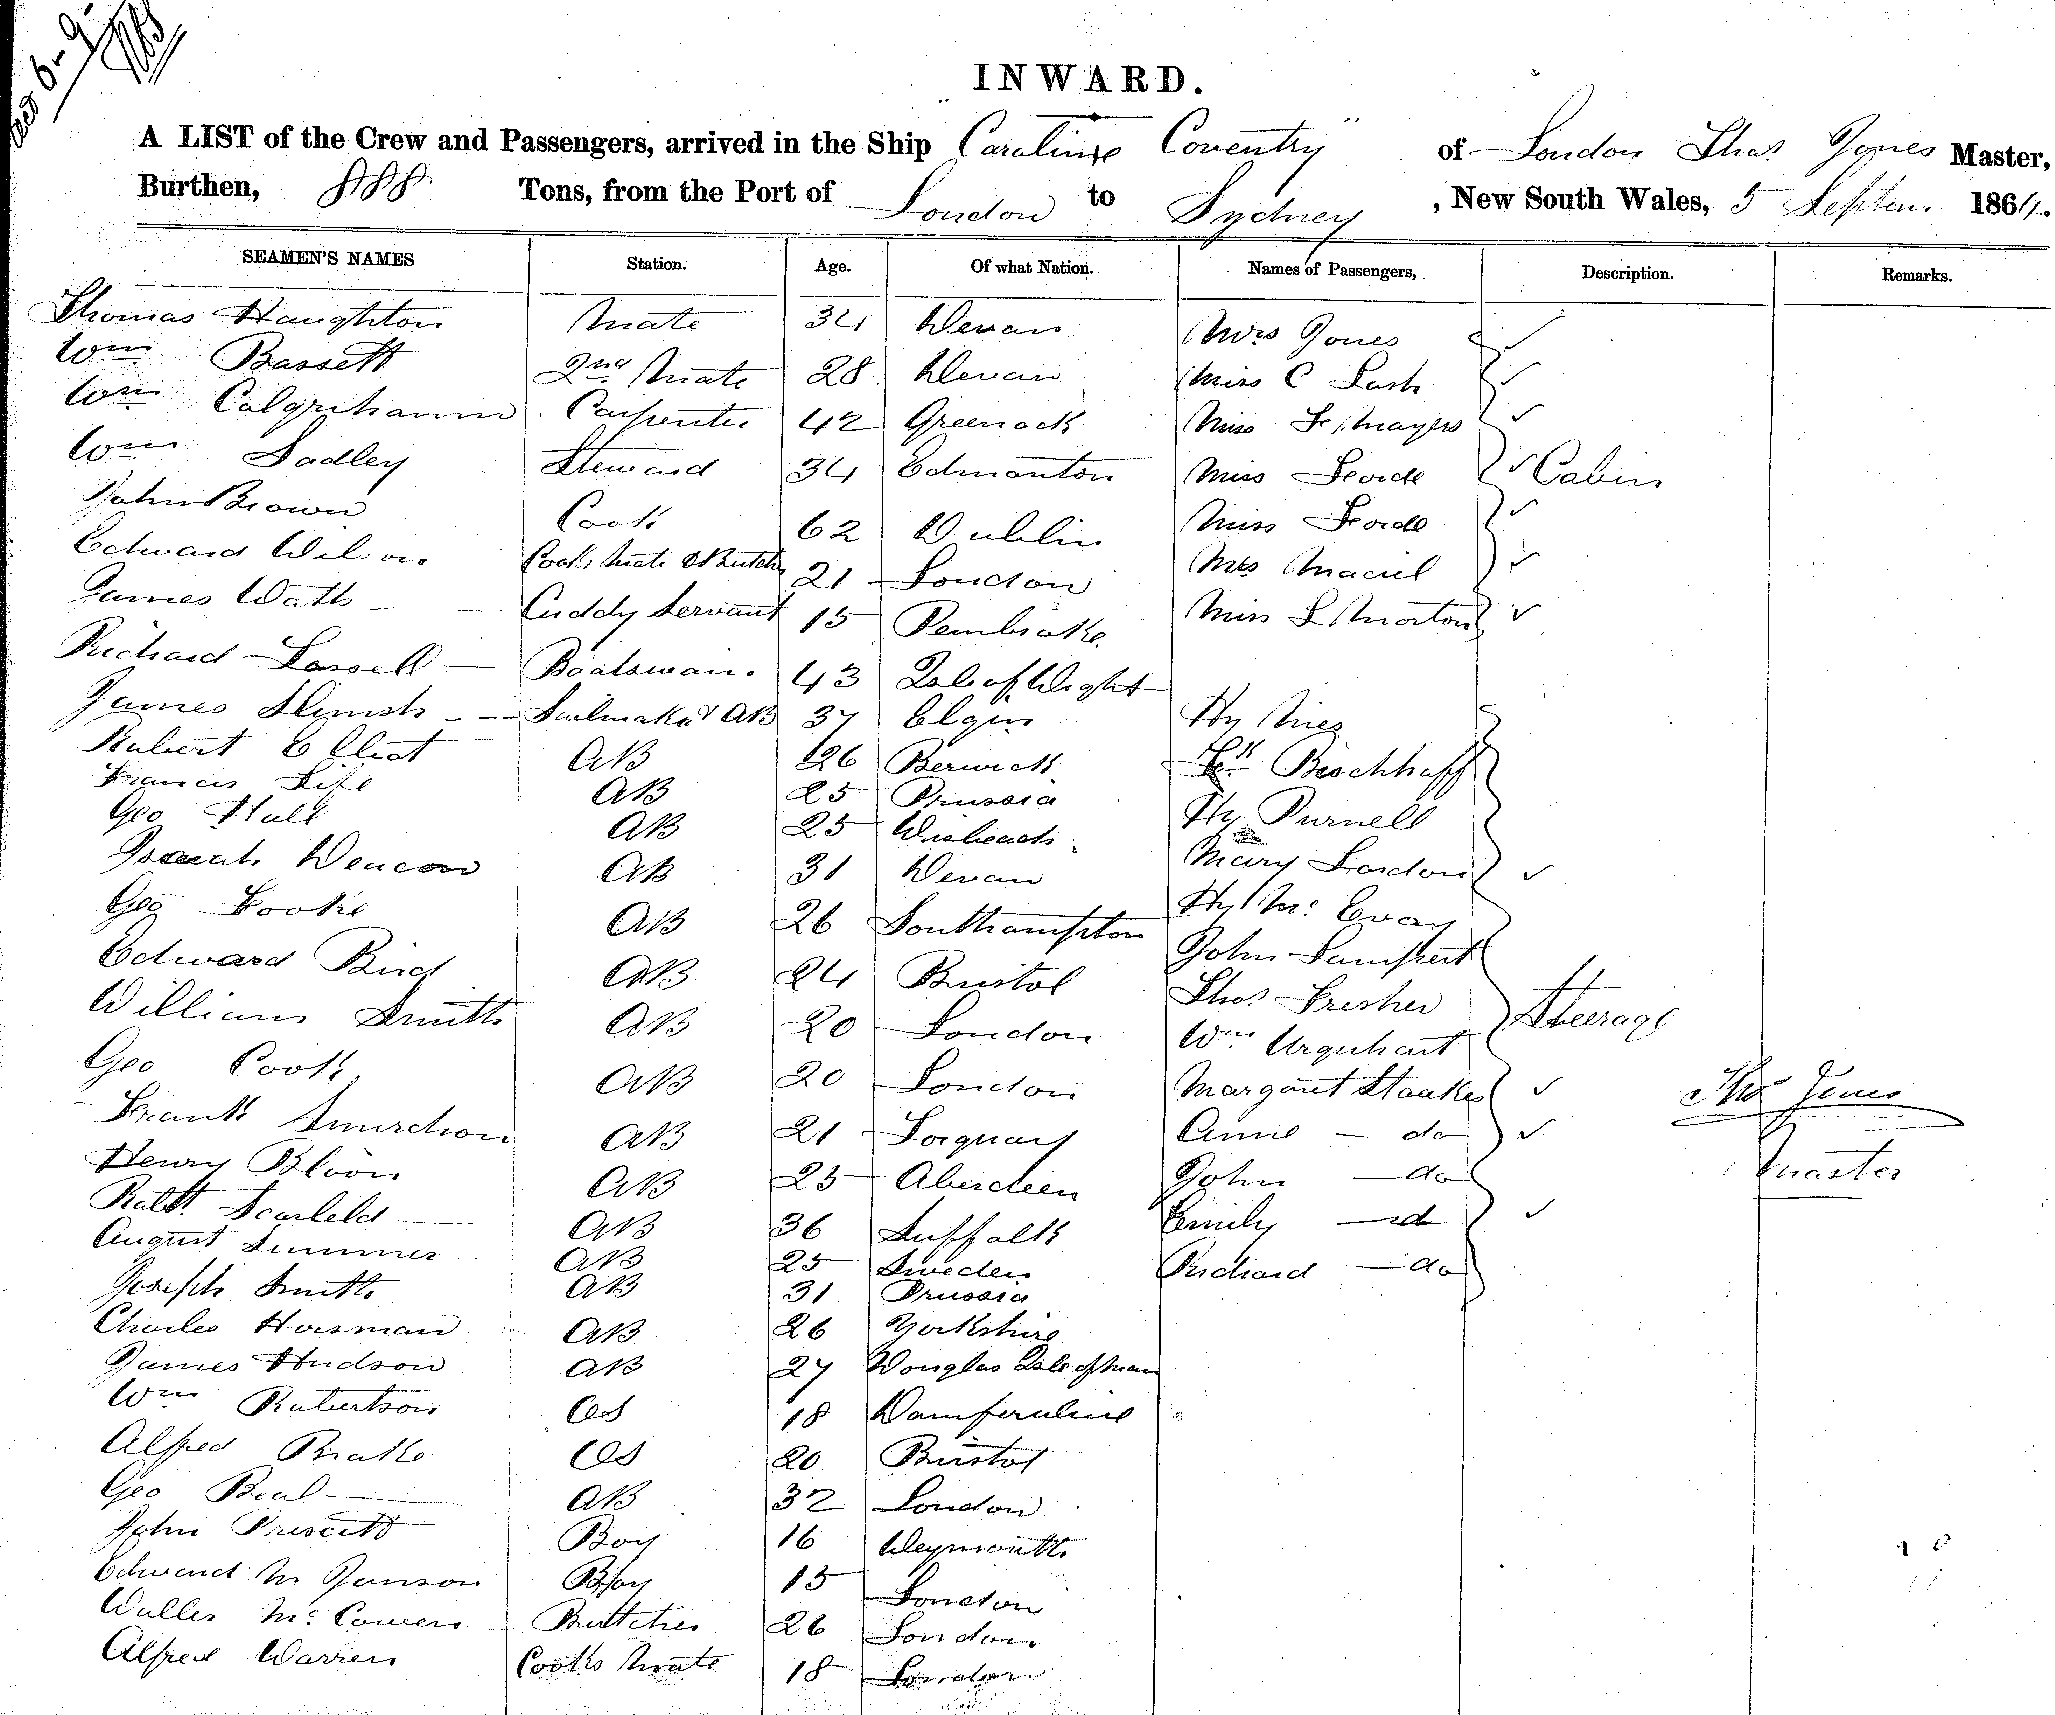 INWARD.
A LIST of the Crew and Passengers, arrived in the Ship "Caroline Coventry" of London Thos Jones Master,
Burthen, 888 Tons, from the Port of London to Sydney, New South Wales, 5 Septem. 1864.
SEAMEN'S NAMES Station. Age. Of what Nation. Names of Passengers, Description. Remarks.
Thomas Haughton Mate 34 Devan Mrs Jones
Wm Bassett 2nd Mate 28 Devan Miss C Lash
Wm Colquhoun Carpenter 42 Greenock Miss
Wm Sadley Steward 34 Edmonton Miss Cabin
John Brown Cook 62 Dublin Miss
Edward Wilson Cooks Mate & Butcher 21 London
James Watts Cuddy Servant 15 Pembroke Miss L Morton
Richard Lassell Boatswain. 43 Isle of Wight
James Sailmaker & AB 37 Elgin Hy
Robert Elliot AB 26 Berwick Bischhoff
Francis Fife AB 25 Prussia Hy Purnell
Geo Hull AB 25 Wisbeach Mary Lordon
Deacon AB 31 Devan Hy
Geo Cooke AB 26 Southampton John Lampert
Edward Bird AB 24 Bristol Thos Fresher
William Smith AB 20 London Wm Urquhart Steerage
Geo Cook AB 20 London Margaret Stoakes
Frank AB 21 Torquay Annie - do Thos Jones
Henry Bloon AB 23 Aberdeen John - do Master
Robt. Scarfeld AB 36 Suffolk Emily - do
August Summer AB 25 Sweden Richard - do
Joseph Smith AB 31 Prussia
Charles Horsman AB 26 Yorkshire
James Hudson AB 27 Douglas Isle of Man
Wm Robertson OS 18 Damfernline
Alfred Brake OS 20 Bristol
Geo Beal AB 32 London
John Priscott Boy 16 Weymouth
Edward M Janson Boy 15 London
Walter Mc Cowen Butcher 26 London
Alfred Warren Cooks Mate 18 London